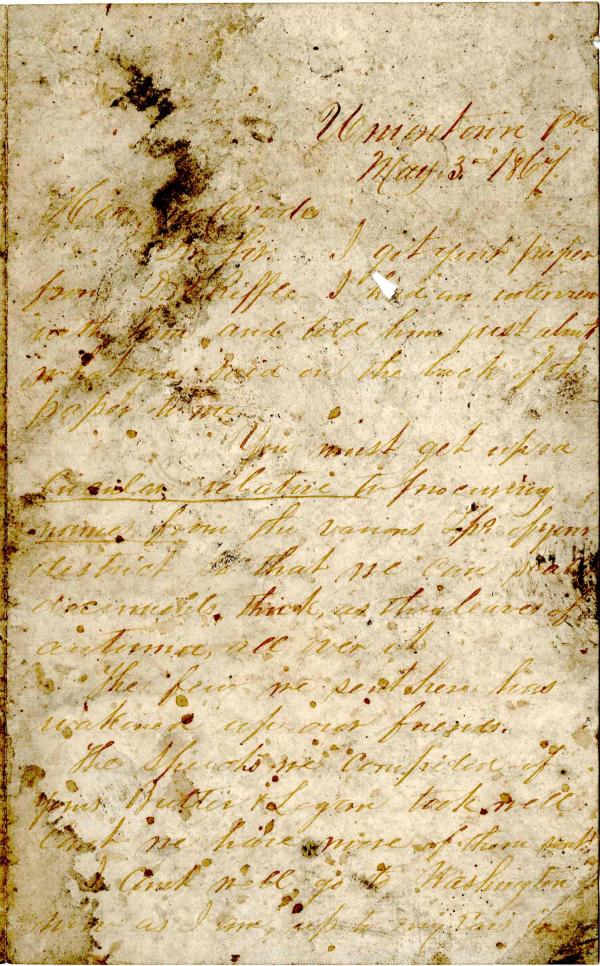 Uniontown Pa
May 3rd 1867
Hon Jno Covode
Dr Sir. I got your paper
from Dr Riffle I had an interview
with him, and told him just about
what you said on the back of the
paper to me
You must get up a
circular relative to procuring
names from the various Tps of your
district so that we can
documents, thick, as the leaves of
autumn, all over it
The few we sent here has
wakened up our friends.
The Speech we compiled of
yours Butler & Logan took well
Cant we have more of them sent
I cant well go to Washington
now as I am, up to my Ears in